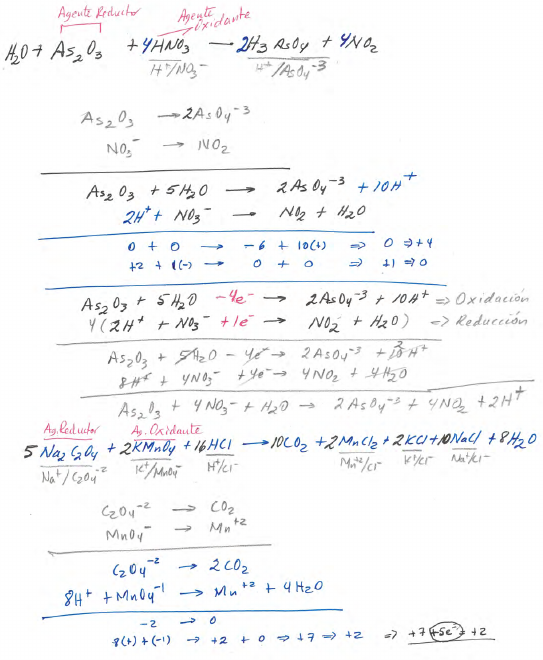 Agente Reductor
Agente oxidante
H2O + As2O3 + 4HNO3 → 2H3AsO4 + 4NO2
H+/NO3- H+/AsO4-3
As2O3 → 2AsO4-3
NO3- → NO2
As2O3 + 5H2O → 2AsO4-3 + 10H+
2H+ + NO3- → NO2 + H2O
0 + 0 → -6 + 10(+) ⇒ 0 ⇒ +4
+2 + 1(-) → 0 + 0 ⇒ +1 ⇒ 0
As2O3 + 5H2O -4e- → 2AsO4-3 + 10H+ ⇒ Oxidación
4(2H+ + NO3- +1e- → NO2 + H2O) ⇒ Reducción
As2O3 + 5H2O - 4e- → 2AsO4-3 + 10H+ 2
8H+ + 4NO3- +4e- → 4NO2 + 4H2O
As2O3 + 4NO3- + H2O → 2AsO4-3 + 4NO2 + 2H+
Ag.Reductor Ag.Oxidante
5Na2C2O4 + 2KMnO4 + 16HCl → 10CO2 + 2MnCl2 + 2KCl + 10NaCl + 8H2O
Na+/C2O4-2 K+/MnO4- H+/Cl- Mn+2/Cl- K+/Cl- Na+/Cl-
C2O4-2 → CO2
MnO4- → Mn+2
C2O4-2 → 2CO2
8H+ + MnO4-1 → Mn+2 + 4H2O
-2 → 0
8(+) + (-1) → +2 + 0 ⇒ +7 ⇒ +2 ⇒ +7 +5e- = +2